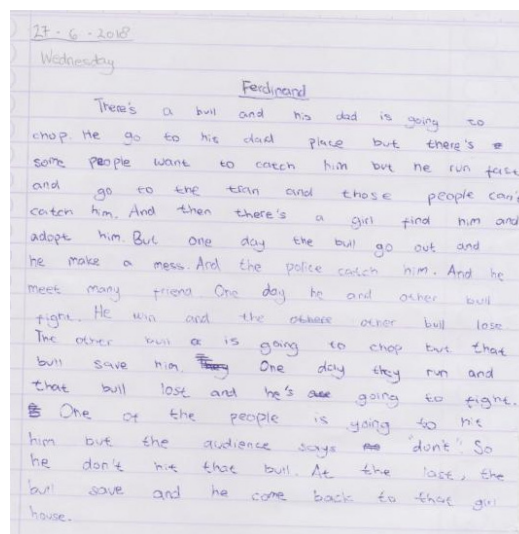 27 - 6 - 2018
Wednesday
Ferdinand
There's a bull and his dad is going to
chop. He go to his dad place but there's
some people want to catch him but he run fast
and go to the tran and those people can't
catch him. And then there's a girl find him and
adopt him. But one day the bull go out and
he make a mess. And the police catch him. And he
meet many friend. One day he and other bull
fight. He win and the others other bull lose.
The other bull is going to chop but that
bull save him. One day they run and
that bull lost and he's going to fight.
One of the people is going to hit
him but the audience says "don't". So
he don't hit that bull. At the last, the
bull save and he come back to that girl
house.